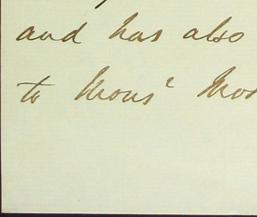 and has also
to Mons^r Mos